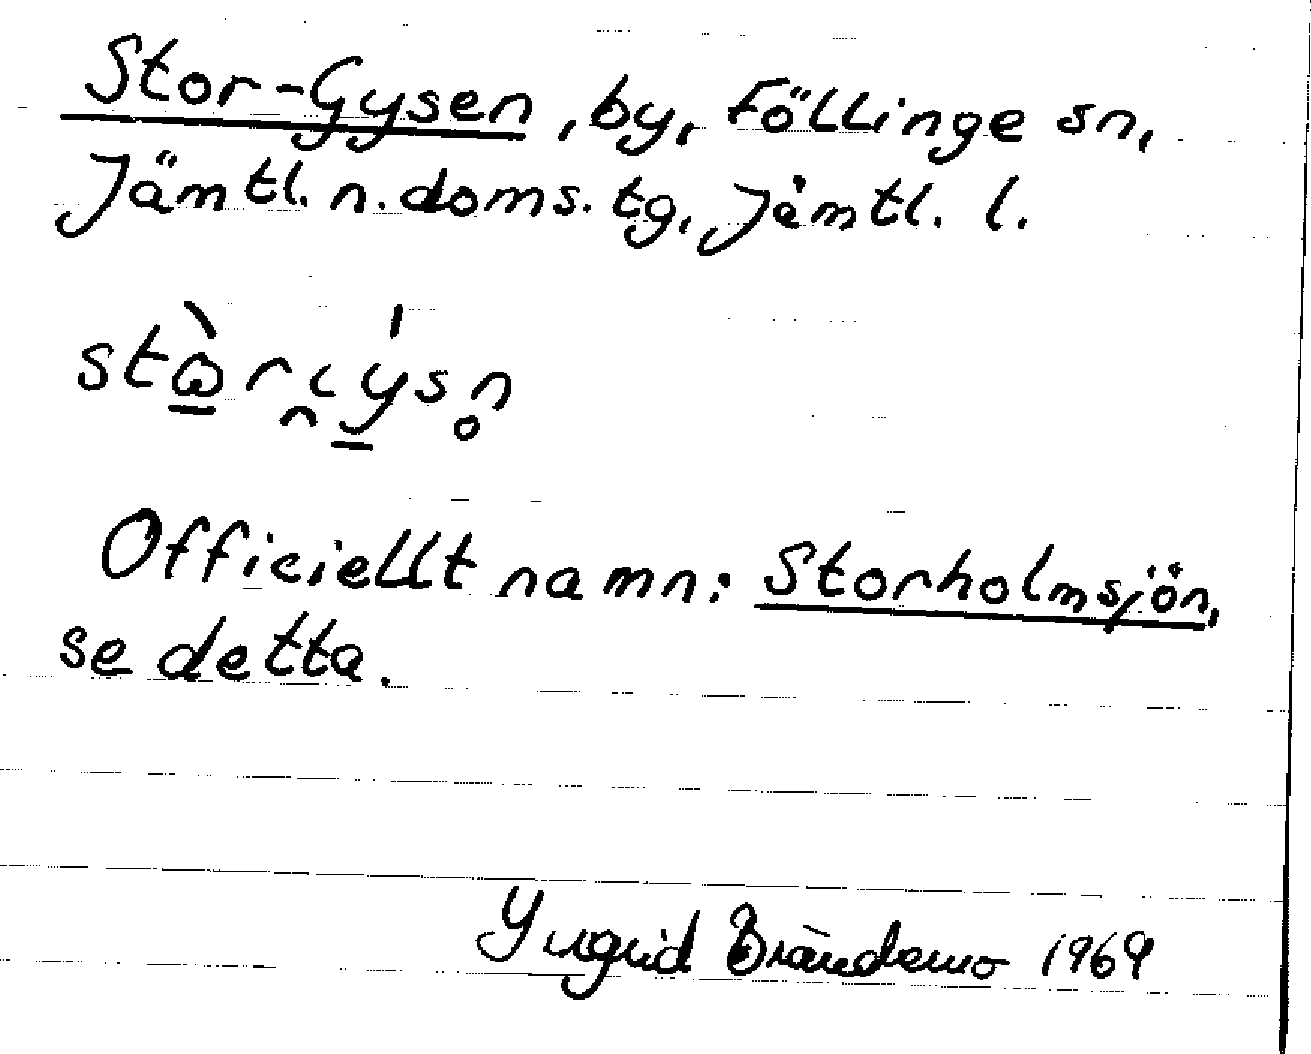 Stor-Gysen, by, Föllinge sn,
Jämtl. n. doms. tg, Jämtl. l.
Officiellt namn: Storholmsjön,
se detta.
Yngrid Brändemo 1969